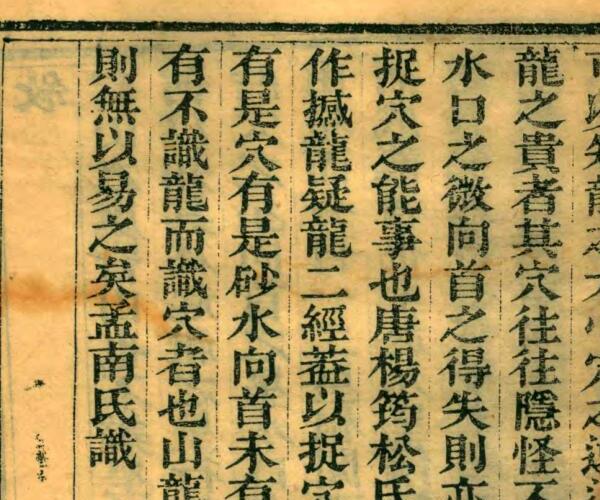 可以知龍之大小穴之
龍之貴者其穴往往隱怪不
水口之微向首之得失則亦
捉穴之能事也唐楊筠松氏
作撼龍疑龍二經蓋以捉穴
有是穴有是砂水向首未有
有不識龍而識穴者也山龍
則無以易之矣孟南氏識